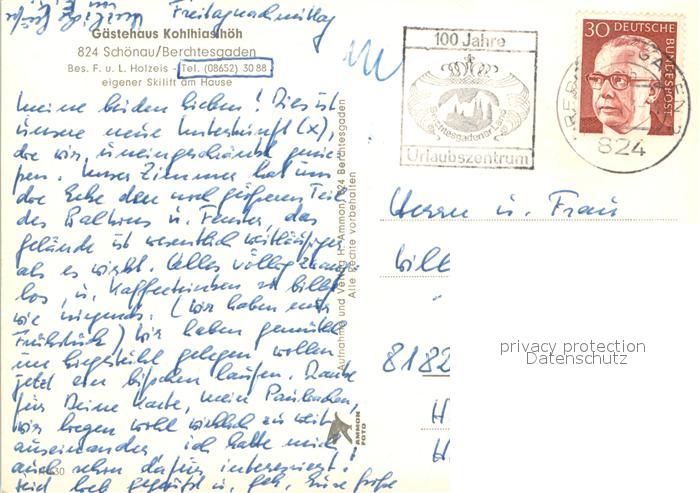 Freitagnachmittag
Gästehaus Kohlhiaslhöh
824 Schönau/Berchtesgaden
Bes. F. u. L. Holzeis - Tel. (08652) 30 88
eigener Skilift am Hause
meine beiden Lieben! Dies ist
unsere neue Unterkunft (x),
die wir uneingeschränkt genie-
ßen. Unser Zimmer hat um
die Ecke den noch größeren Teil
des Balkons u. Fenster, das
Gelände ist wesentlich weitläufiger
als es wirkt. Alles völlig zwang-
los, u. Kaffeetrinken so billig
wie nirgends. (Wir haben nur
Frühstück) Wir haben gemütlich
im Liegestuhl gelegen, wollen
jetzt ein bißchen laufen. Danke
für Deine Karte, mein
wir liegen wohl wirklich zu weit
auseinander, ich hatte mich
auch schon dafür interessiert!
Seid lieb gegrüßt u. geh. Eure
Aufnahme und Verlag H. Ammon, 824 Berchtesgaden
Alle Rechte vorbehalten
AMMON
FOTO
100 Jahre
Berchtesgadener Land
Urlaubszentrum
30 DEUTSCHE
BUNDESPOST
824
Herrn u. Frau
Will
8182
privacy protection
Datenschutz